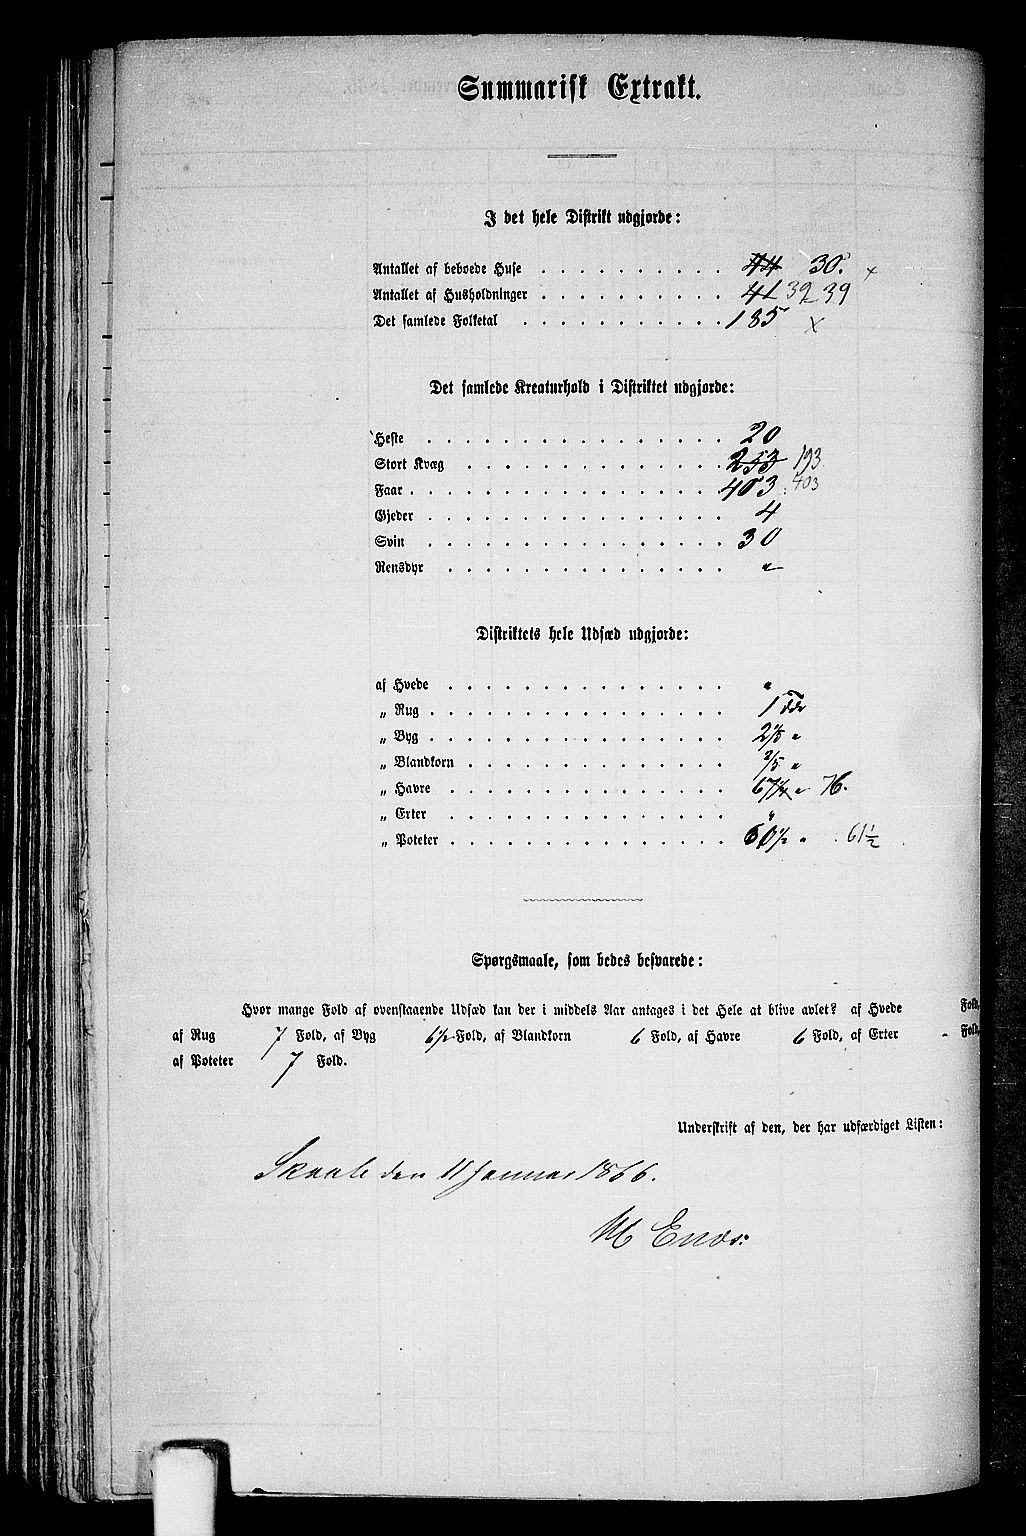 Summarisk Extrakt.
I det hele Distrikt udgjorde:
Antallet af beboede Huse . . . . . . . . . . 44 30. x
Antallet af Husholdninger . . . . . . . . . . 41 39 39
Det samlede Folketal . . . . . . . . . . . 185 x
Det samlede Kreaturhold i Distriktet udgjorde:
Heste . . . . . . . . . . . . . . . . 20
Stort Kvæg . . . . . . . . . . . . . . 253 193
Faar . . . . . . . . . . . . . . . . . 403 403
Gjeder . . . . . . . . . . . . . . . . 4
Svin . . . . . . . . . . . . . . . . . 30
Rensdyr . . . . . . . . . . . . . . . "
Distriktets hele Udsæd udgjorde:
af Hvede . . . . . . . . . . . . . . . "
„ Rug . . . . . . . . . . . . . . . . 1 Tdr
„ Byg . . . . . . . . . . . . . . . . "
„ Blandkorn . . . . . . . . . . . . . 2/5 "
„ Havre . . . . . . . . . . . . . . . 67 1/4 " 76.
„ Erter . . . . . . . . . . . . . . . "
„ Poteter . . . . . . . . . . . . . . 60 1/2 " 61 1/2
Spørgsmaale, som bedes besvarede:
Hvor mange Fold af ovenstaaende Udsæd kan der i middels Aar antages i det Hele at blive avlet? af Hvede Fold,
af Rug 7 Fold, af Byg 6 1/2 Fold, af Blandkorn 6 Fold, af Havre 6 Fold, af Erter - Fold,
af Poteter 7 Fold.
Underskrift af den, der har udfærdiget Listen:
den 11 Januar 1866.